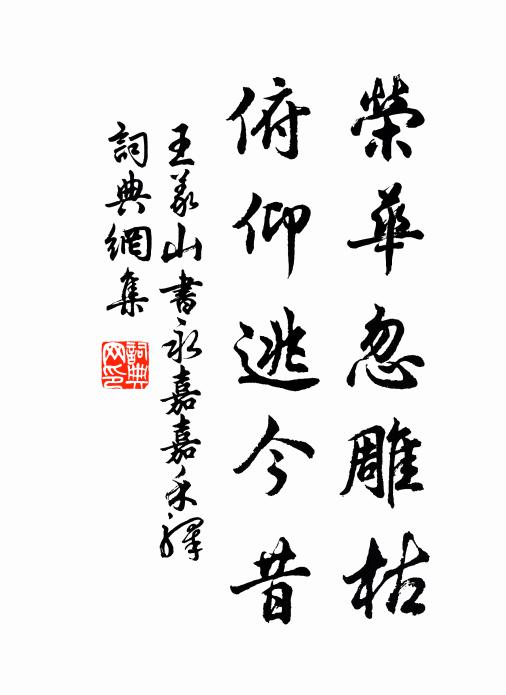 榮華忽雕枯
俯仰逃今昔
王義山書永嘉嘉禾驛
詞典網集
詞典
网印